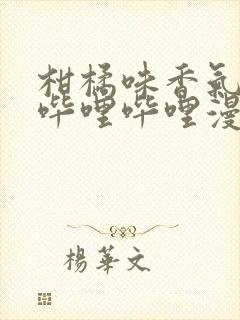 柑橘味香氣
哔哩哔哩漫
楊華文